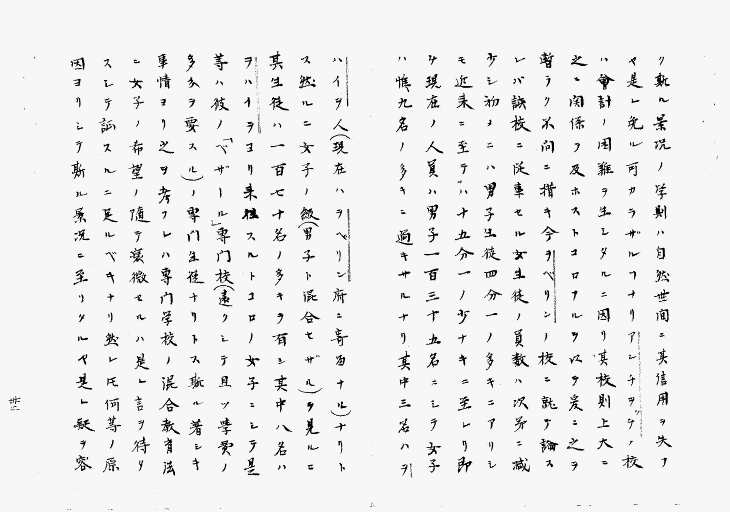 ク斯ル景況ノ学則ハ自然世間ニ其信用ヲ失フ
ヤ是レ免ル可カラザルコナリアンチヲツシノ校
ハ會計ノ困難ヲ生シタルニ因リ其校則上大ニ
之ニ関係ヲ及ホストコロアルヲ以テ爰ニ之ヲ
暫ラク不問ニ措キ今ヲベリンノ校ニ就テ論ス
レバ該校ニ従事セル女生徒ノ員数ハ次第ニ減
少シ初メニハ男子生徒四分一ノ多キニアリシ
モ近来ニ至テハ十五分一ノ少ナキニ至レリ即
チ現在ノ人員ハ男子一百三十五名ニシテ女子
ハ惟九名ノ多キニ過キサルナリ其中三名ハヲ
ハイヲ人(現在ハヲベリン府ニ寄留ナル)ナリト
ス然ルニ女子ノ級(男子ト混合セザル)ヲ見ルニ
其生徒ハ一百七十名ノ多キヲ有シ其中八名ハ
ヲハイヲヨリ来往スルトコロノ女子ニシテ是
等ハ彼ノ「ベザール」専門校(遠クシテ且ツ學費ノ
多分ヲ要スル)ノ専門生徒ナリトス斯ル著シキ
事情ヨリ之ヲ考フレハ専門学校ノ混合教育法
ニ女子ノ希望ノ随テ衰微セルハ是レ言ヲ待タ
スシテ証スルニ足ルベキナリ然レ氏何等ノ原
因ヨリシテ斯ル景況ニ至リタルヤ是レ疑ヲ容
廿二